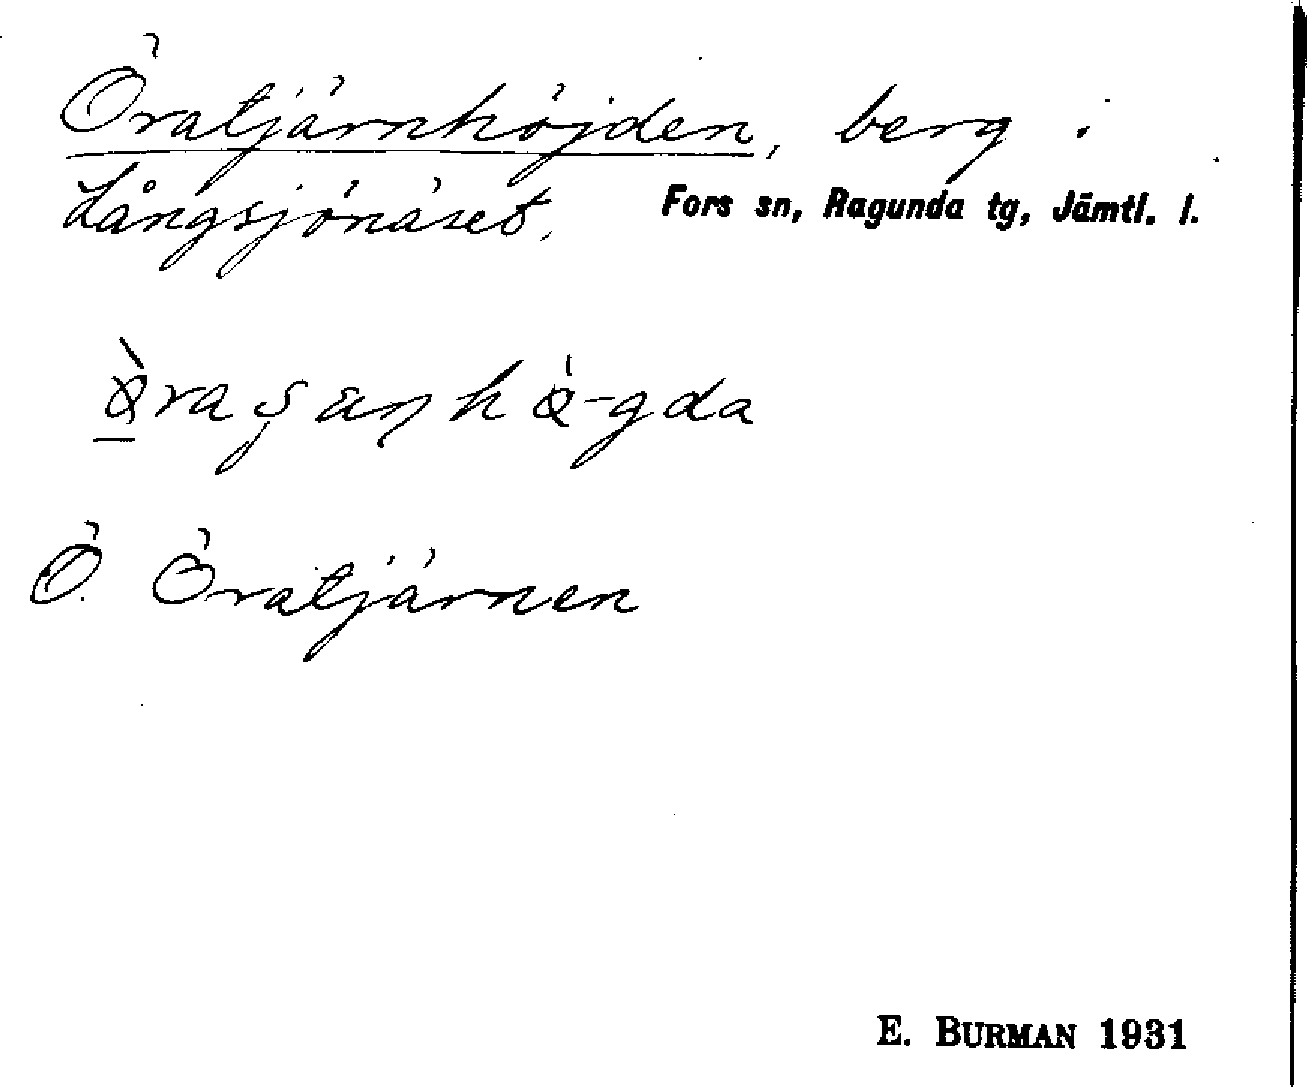 Öratjärnhöjden, berg i
Långsjönäset. Fors sn, Ragunda tg, Jämtl. l.
Ö. Öratjärnen
E. BURMAN 1931